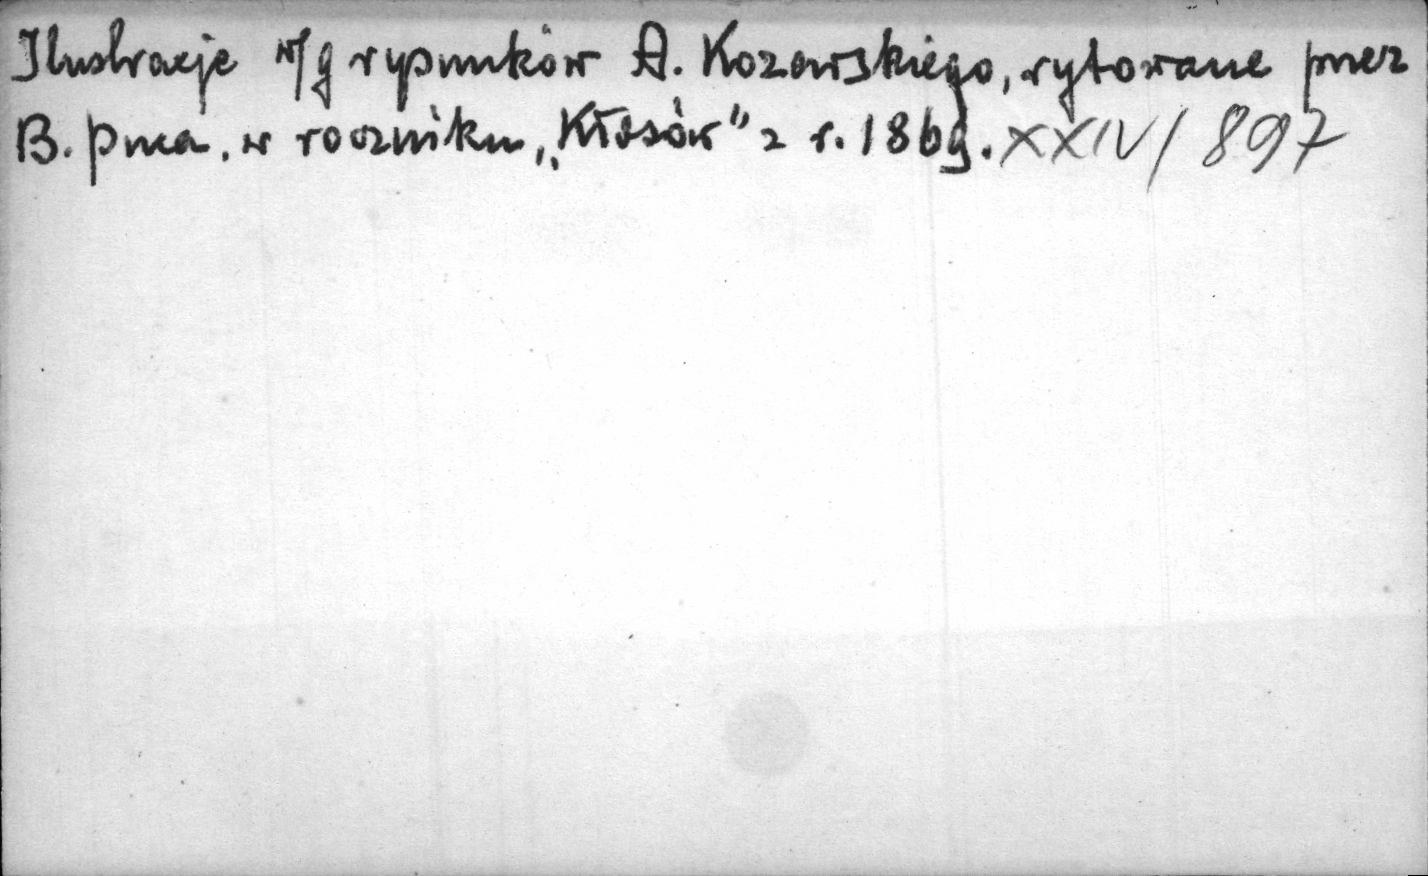 Ilustracje w/g rysunków A. Kozarskiego, rytowane przez
B. Puca, w roczniku „Kłosów" z r. 1869. XXIV/897